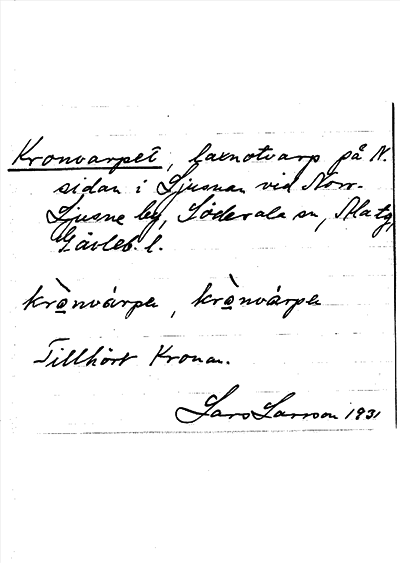 Kronvarpet, laxnotvarp på N.
sidan i Ljusnan vid Norr-
Ljusne by, Söderala sn, Ala tg,
Gävleb. l.
krò̠nvárpe, krò̠nvárpe
Tillhört Kronan.
Lars Larsson 1931